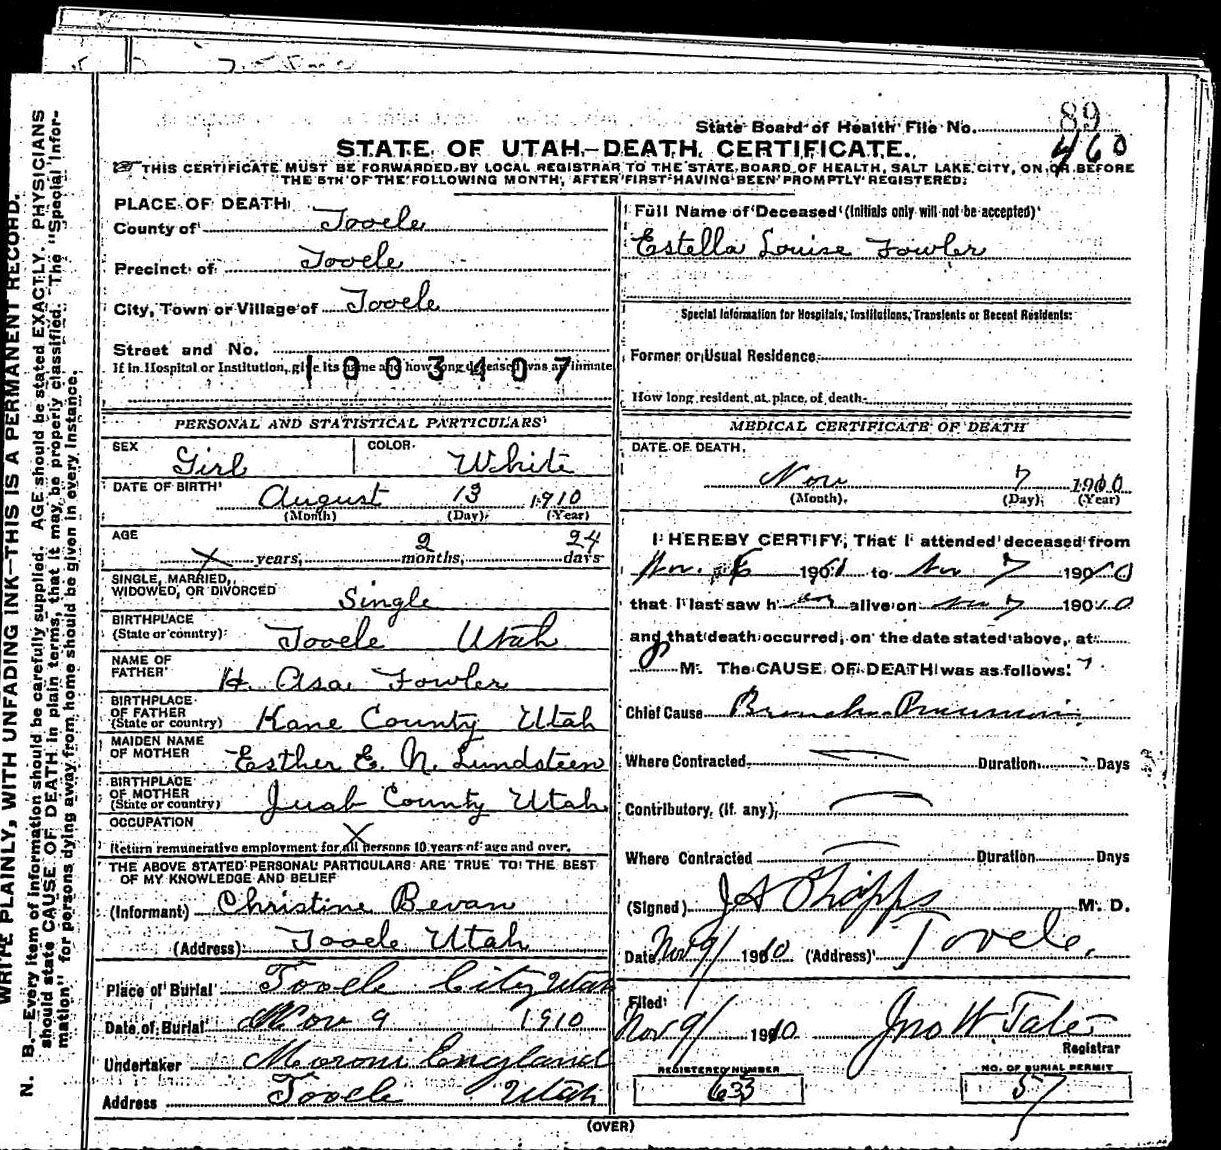 State Board of Health File No. 89
460
STATE OF UTAH—DEATH CERTIFICATE.
☞ THIS CERTIFICATE MUST BE FORWARDED BY LOCAL REGISTRAR TO THE STATE BOARD OF HEALTH, SALT LAKE CITY, ON OR BEFORE
THE 5TH OF THE FOLLOWING MONTH, AFTER FIRST HAVING BEEN PROMPTLY REGISTERED.
PLACE OF DEATH
County of Tooele
Precinct of Tooele
City, Town or Village of Tooele
Street and No.
1003407
If in Hospital or Institution, give its name and how long deceased was an inmate
PERSONAL AND STATISTICAL PARTICULARS
SEX Girl COLOR White
DATE OF BIRTH August 13 1910
(Month) (Day) (Year)
AGE X years, 2 months, 24 days
SINGLE, MARRIED,
WIDOWED, OR DIVORCED Single
BIRTHPLACE
(State or country) Tooele Utah
NAME OF
FATHER H. Asa Fowler
BIRTHPLACE
OF FATHER
(State or country) Kane County Utah
MAIDEN NAME
OF MOTHER Esther E. N. Lundsteen
BIRTHPLACE
OF MOTHER
(State or country) Juab County Utah
OCCUPATION X
Return remunerative employment for all persons 10 years of age and over.
THE ABOVE STATED PERSONAL PARTICULARS ARE TRUE TO THE BEST
OF MY KNOWLEDGE AND BELIEF
(Informant) Christine Bevan
(Address) Tooele Utah
Place of Burial Tooele City Utah
Date of Burial Nov 9 1910
Undertaker Moroni England
Address Tooele Utah
Full Name of Deceased (Initials only will not be accepted)
Estella Louise Fowler
Special Information for Hospitals, Institutions, Transients or Recent Residents:
Former or Usual Residence
How long resident at place of death
MEDICAL CERTIFICATE OF DEATH
DATE OF DEATH.
Nov 7 1910
(Month) (Day) (Year)
I HEREBY CERTIFY, That I attended deceased from
Nov. 6 1910 to Nov 7 1910
that I last saw her alive on Nov 7 1910
and that death occurred, on the date stated above, at
8 M. The CAUSE OF DEATH was as follows:
Chief Cause Broncho Pneumonia
Where Contracted Duration Days
Contributory, (if any)
Where Contracted Duration Days
(Signed) M. D.
Date Nov 9/ 1910 (Address) Tooele.
Filed
Nov 9/ 1910 Jno W Tate
Registrar
REGISTERED NUMBER
633
NO. OF BURIAL PERMIT
57
(OVER)
WRITE PLAINLY, WITH UNFADING INK—THIS IS A PERMANENT RECORD.
N. B.—Every item of information should be carefully supplied. AGE should be stated EXACTLY. PHYSICIANS
should state CAUSE OF DEATH in plain terms, that it may be properly classified. The "Special Infor-
mation" for persons dying away from home should be given in every instance.